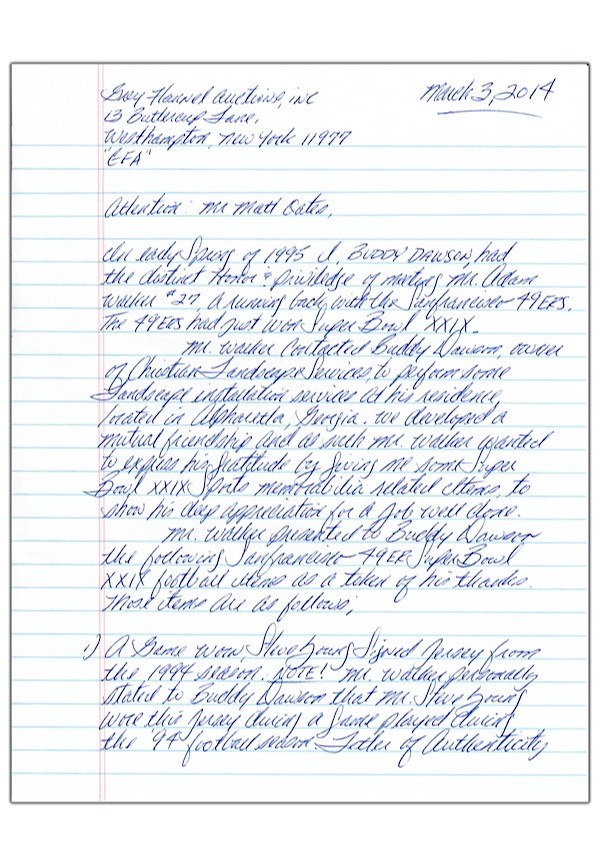 Grey Flannel Auctions, inc
March 3, 2014
13 Buttercup Lane,
Westhampton, New York 11977
"EFA"
Attention: Mr Matt Oates,
In early Spring of 1995 I, BUDDY DAWSON, had
the distinct Honor & priviledge of meeting Mr. Adam
Walker #27, A running back with the Sanfrancisco 49ERS.
The 49ERS had just won Super Bowl XXIX.
Mr. Walker Contacted Buddy Dawson, owner
of Christian Landscape Services, to perform some
Landscape installation services at his residence,
located in Alpharetta, Georgia. We developed a
mutual friendship and as such Mr. Walker wanted
to express his gratitude by giving me some Super
Bowl XXIX Sports memorabilia related items, to
show his deep appreciation for a job well done.
Mr. Walker presented to Buddy Dawson
the following Sanfrancisco 49ER Super Bowl
XXIX football items as a token of his thanks.
Those items are as follows;
1) A Game worn, Steve Young Signed Jersey from
the 1994 season. NOTE! Mr. Walker personally
stated to Buddy Dawson that Mr. Steve Young
wore this Jersey during a Game played during
the '94 football season. Letter of Authenticity